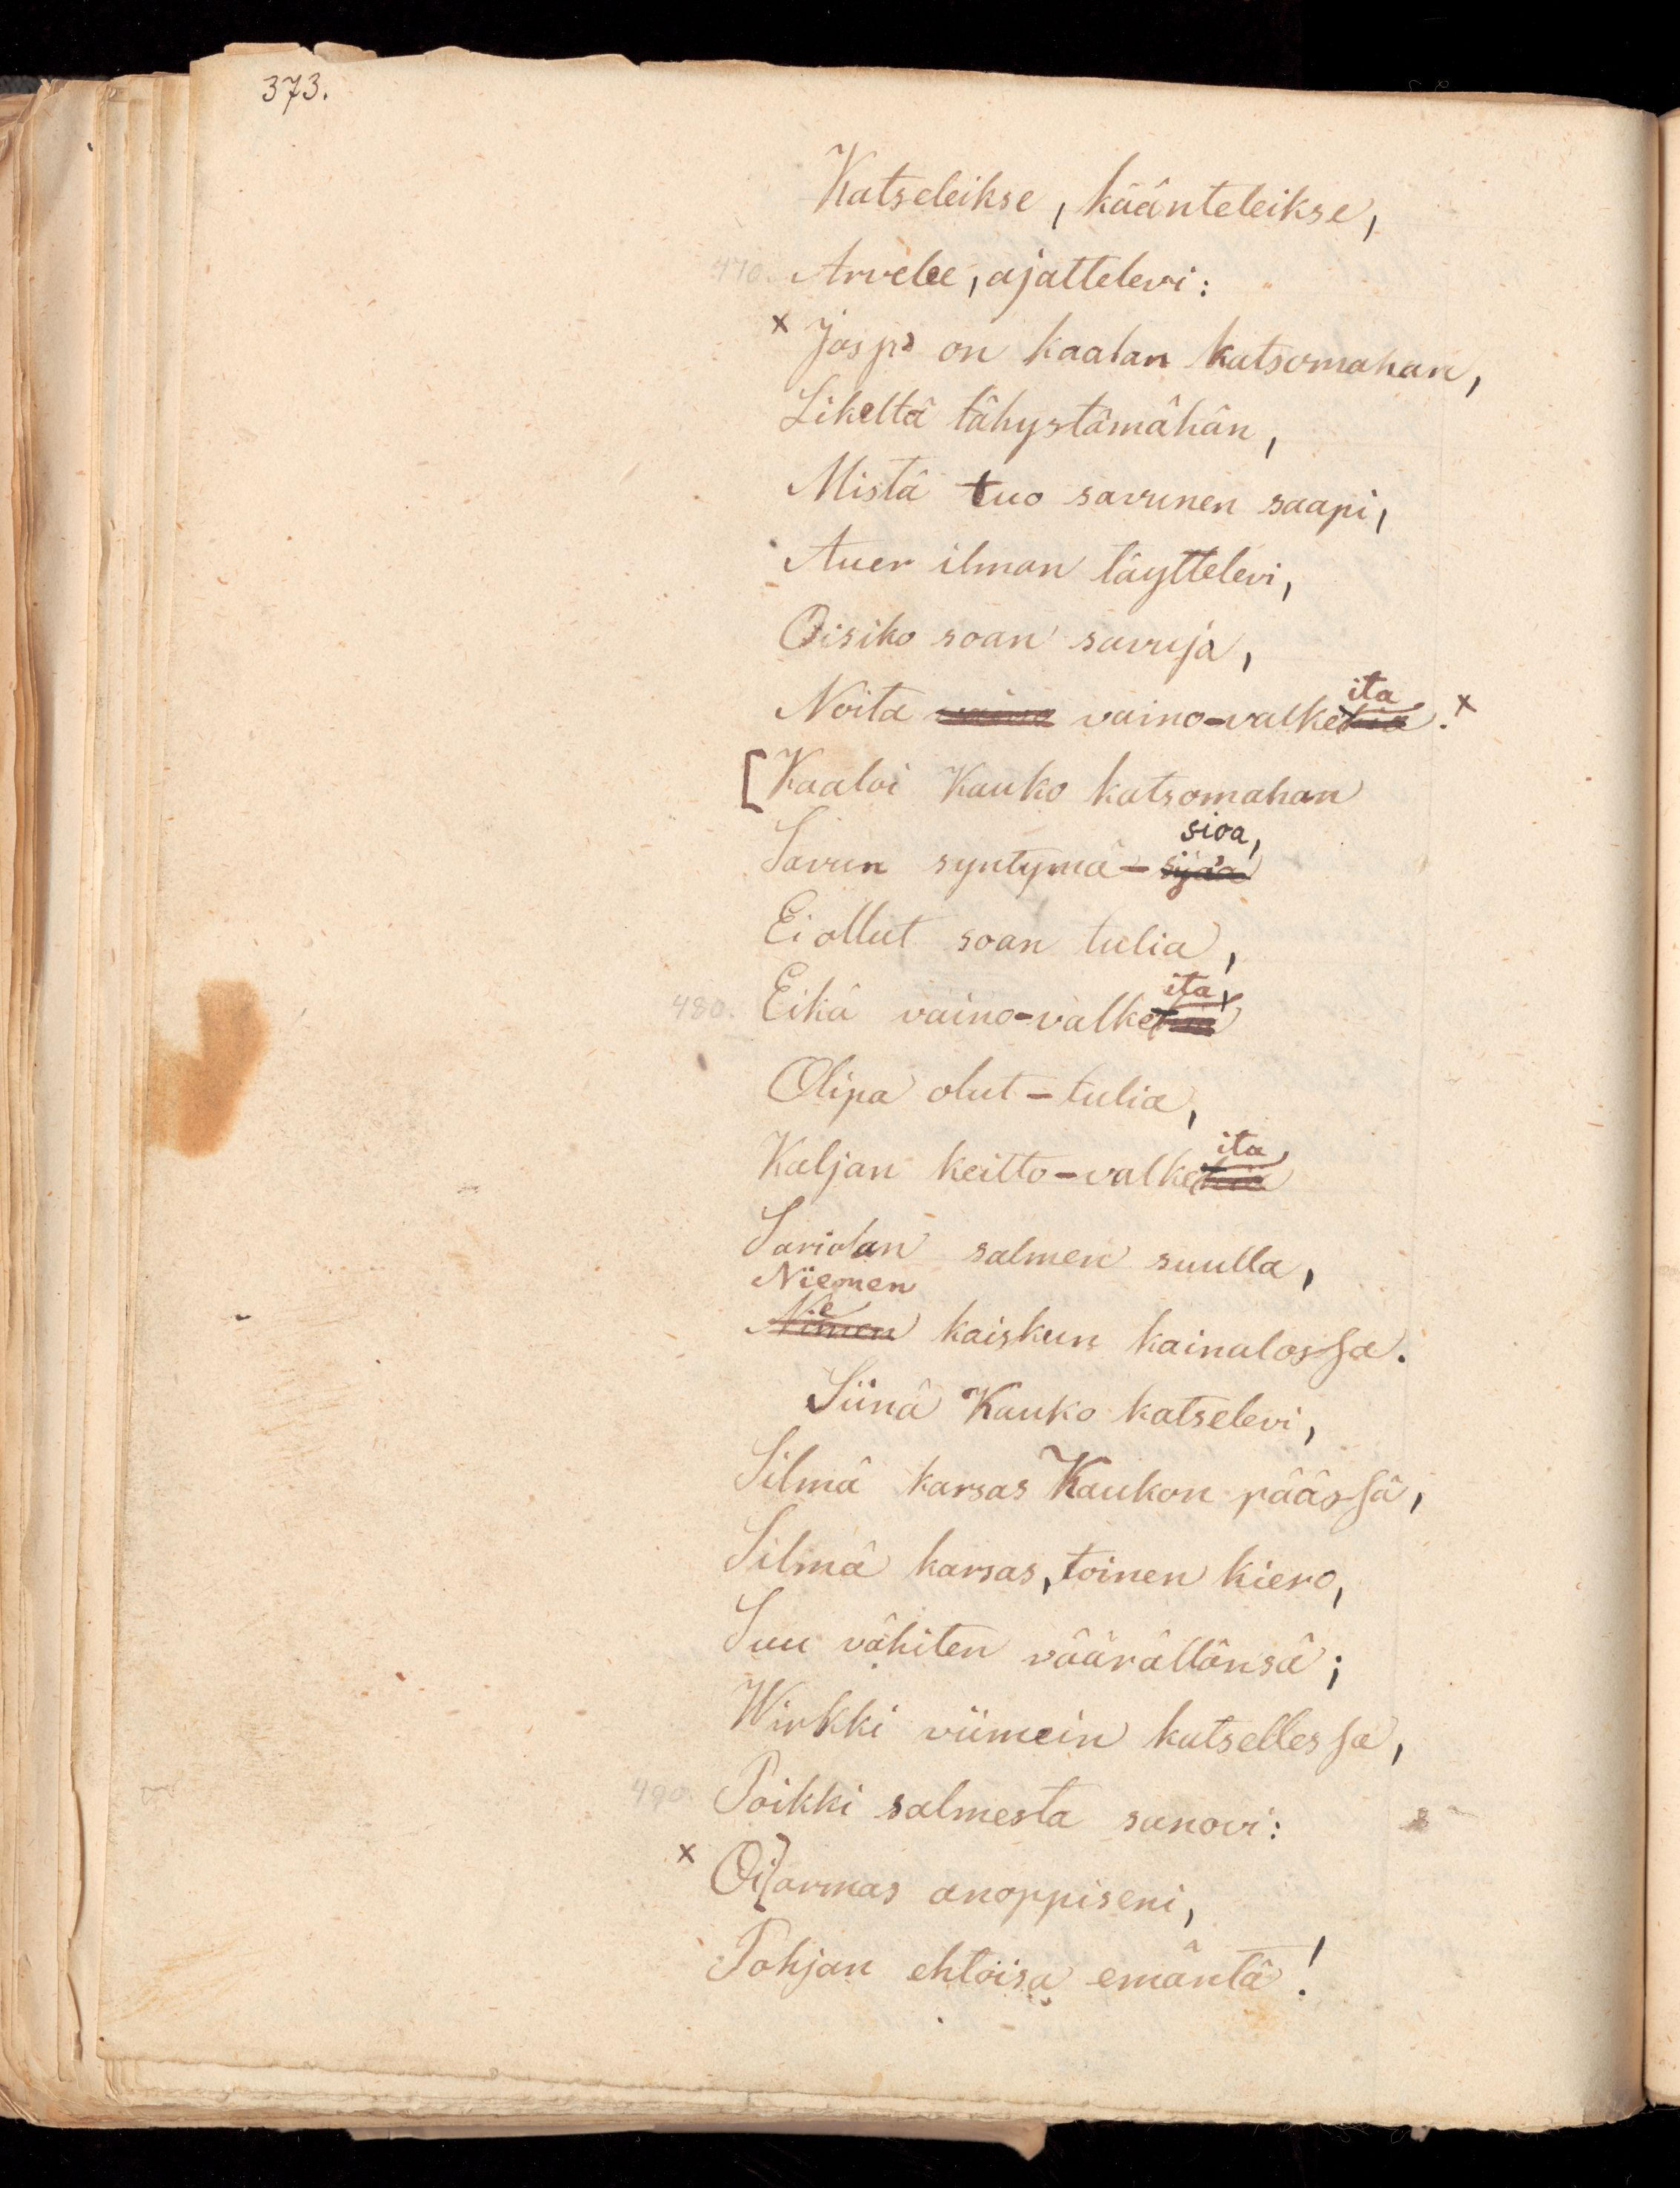 373.
Katseleikse, käänteleikse,
470. Arvelee, ajattelevi:
x Jospa on kaalan katsomahan,
Likeltä tähystämähän,
Mistä tuo savunen saapi,
Auer ilman täyttelevi,
Oisiko soan savuja,
ita
Noita vaino vaino-valkekia. x
[Kaaloi Kauko katsomahan
sioa,
Savun syntymä-sijaa
Ei ollut soan tulia,
ita,
480. Eikä vaino-valkekia
Olipa olut-tulia,
ita,
Kaljan keitto-valkekia
Sariolan salmen suulla,
Niemen
e
Nimen kaiskun kainalossa.
Siinä Kauko katselevi,
Silmä karsas Kaukon päässä,
Silmä karsas, toinen kiero,
Suu vähiten väärällänsä;
Wirkki viimein katsellessa,
490. Poikki salmesta sanovi:
x Oi armas anoppiseni,
Pohjan ehtoisa emäntä!